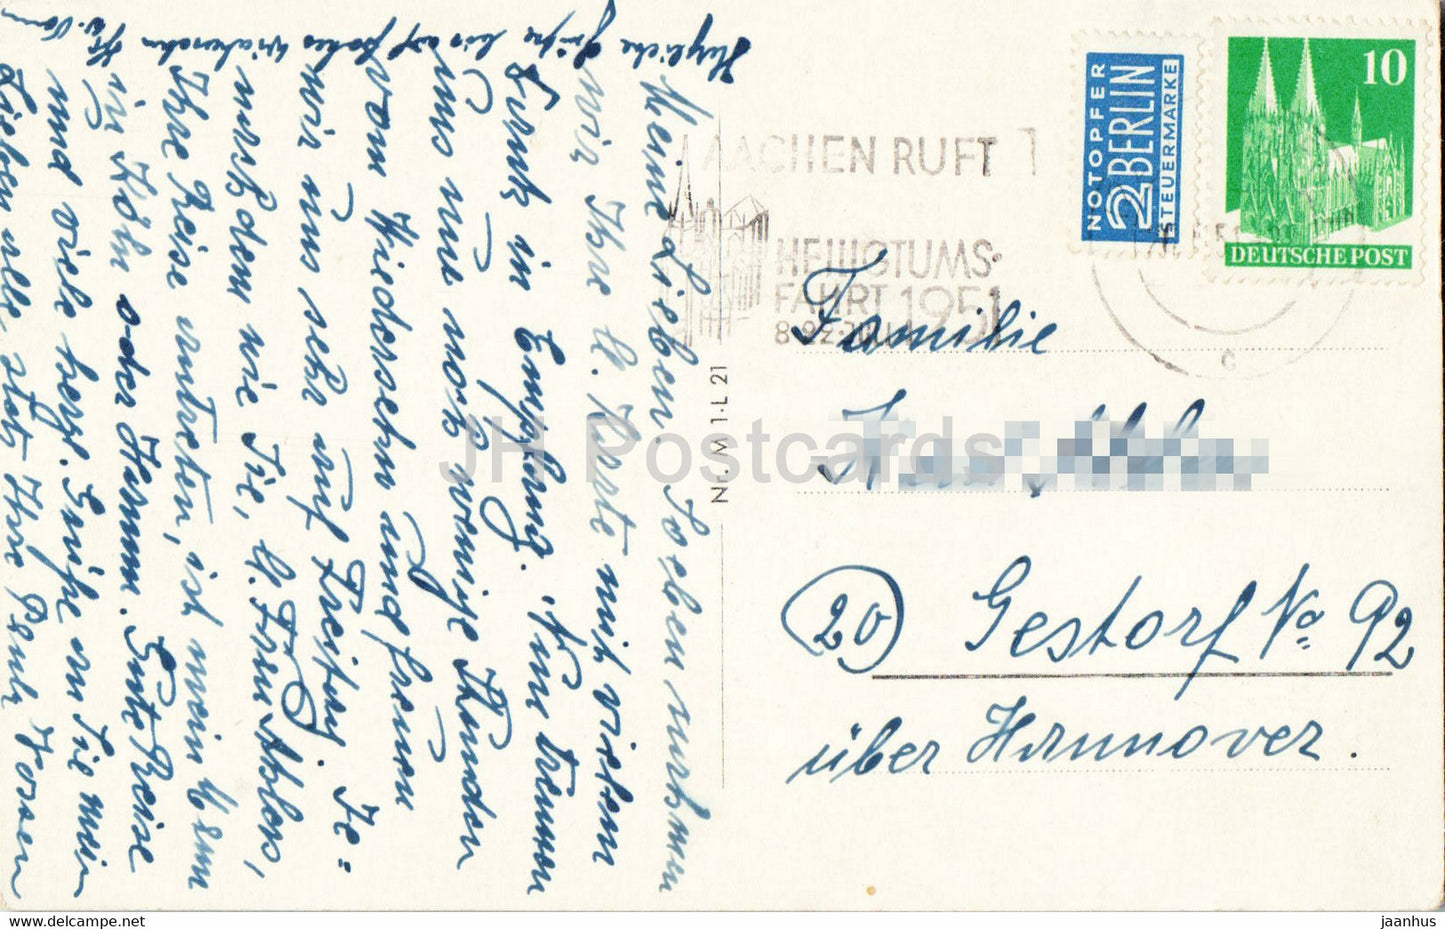 Herzliche Grüße bis auf frohes Wiedersehn
Meine Lieben! Soeben nahmen
wir Ihre lb. Karte mit vielem
Dank in Empfang. Nun trennen
uns nur noch wenige Stunden
vom Wiedersehn und freuen
wir uns sehr auf Freitag. Je=
nachdem wie Sie, lb. Frau Ahlers,
Ihre Reise antreten, ist mein Mann
in Köln oder Hamm. Gute Reise
und viele herzl. Grüße an Sie mein
Lieben alle, stets Ihre
AACHEN RUFT
HEILIGTUMS-
FAHRT 1951
NOTOPFER
2 BERLIN
STEUERMARKE
10
DEUTSCHE POST
c
Familie
(20) Gestorf No 92
über Hannover.
Nr. M 1 · L 21
JH Postcards
www.delcampe.net
jaanhus